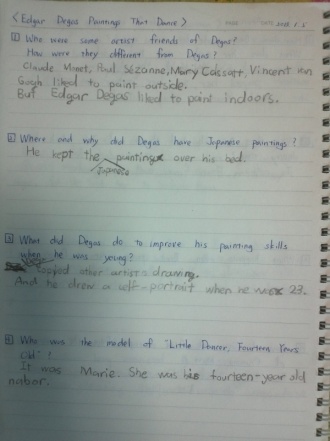 < Edgar Degas Paintings That Dance >
1 Who were some artist friends of Degas?
How were they different from Degas?
Claude Monet, Paul Sézanne, Mary Cassatt, Vincent van
Gogh liked to paint outside.
But Edgar Degas liked to paint indoors.
2 Where and why did Degas have Japanese paintings?
He kept the paintings over his bed.
Japanese
3 What did Degas do to improve his painting skills
when he was young?
copied other artist's drawing.
And he drew a self-portrait when he was 23.
4 Who was the model of "Little Dancer, Fourteen Years
Old"?
It was Marie. She was his fourteen-year old
nabor.